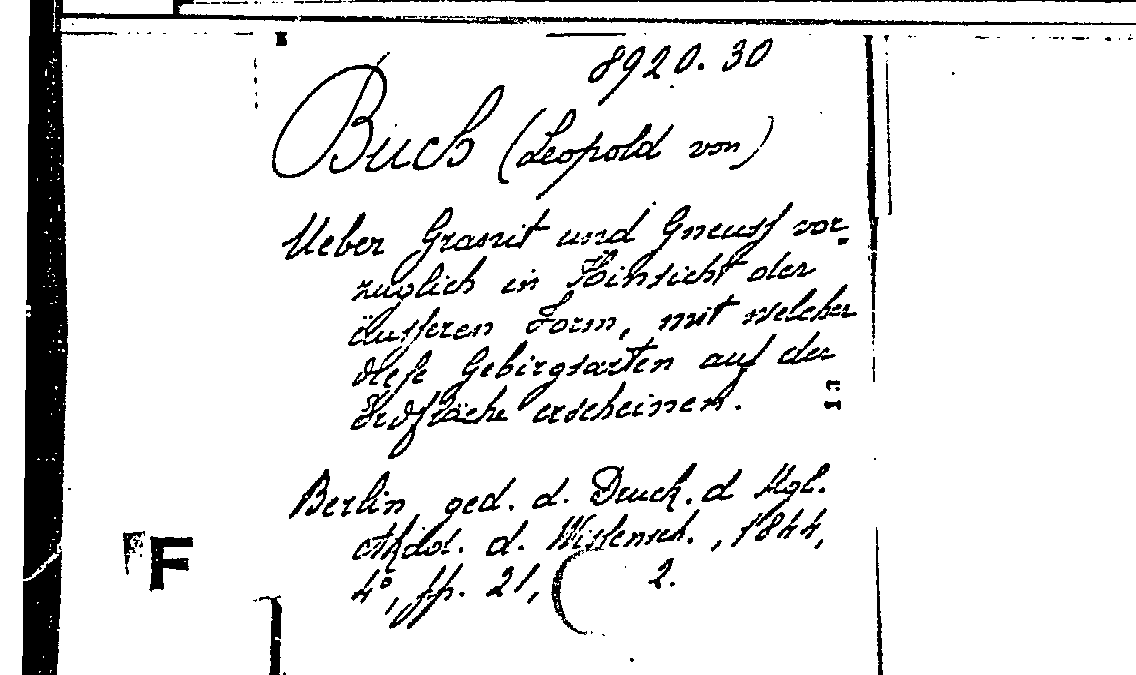 8920.30
Buch (Leopold von)
Ueber Granit und Gneuss vor-
züglich in Hinsicht der
äusseren Form, mit welcher
diese Gebirgsarten auf der
Erdfläche erscheinen.
Berlin, ged. d. Druck. d Kgl.
Akad. d. Wissensch., 1844,
4°, pp. 21, 2.
F